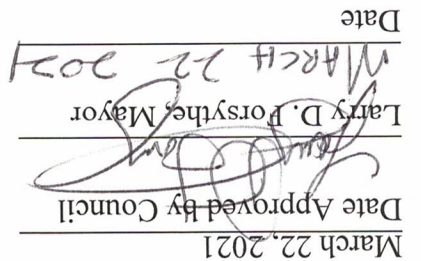 March 22, 2021
Date Approved by Council
Larry D. Forsythe, Mayor
MARCH 22 2021
Date